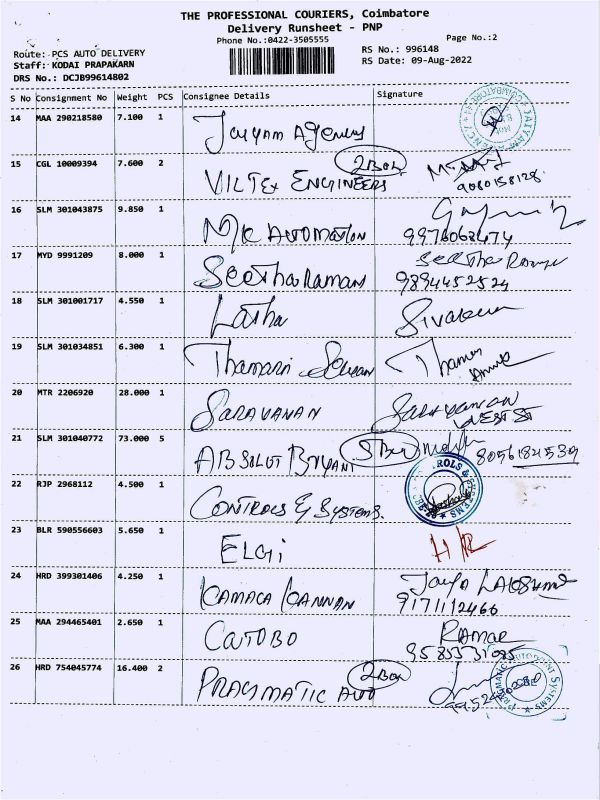 THE PROFESSIONAL COURIERS, Coimbatore
Delivery Runsheet - PNP
Phone No.:0422-3505555
Page No.:2
Route: PCS AUTO DELIVERY
RS No.: 996148
Staff: KODAI PRAPAKARN
RS Date: 09-Aug-2022
DRS No.: DCJB99614802
S No Consignment No Weight PCS Consignee Details Signature
14 MAA 290218580 7.100 1 Jaiyam Agency
15 CGL 10009394 7.600 2 VILTEX ENGINEERS 2 Box
9080158128
16 SLM 301043875 9.850 1 M/C AUTOMATION
9976062474
17 MYD 9991209 8.000 1 Seetha Raman Seetha Raman
9894452524
18 SLM 301001717 4.550 1 Latha Sivakumar
19 SLM 301034851 6.300 1 Thamarai Selvan
20 MTR 2206920 28.000 1 SARAVANAN SARAVANAN
21 SLM 301040772 73.000 5 ABSOLUT 5 Box 8056184539
22 RJP 2968112 4.500 1 CONTROLS & SYSTEMS.
23 BLR 590556603 5.650 1 ELGi
24 HRD 399301406 4.250 1 KAMALA KANNAN Jaya
9171112466
25 MAA 294465401 2.650 1 CATOBO
26 HRD 754045774 16.400 2 PRAGMATIC AUTO 2 Box